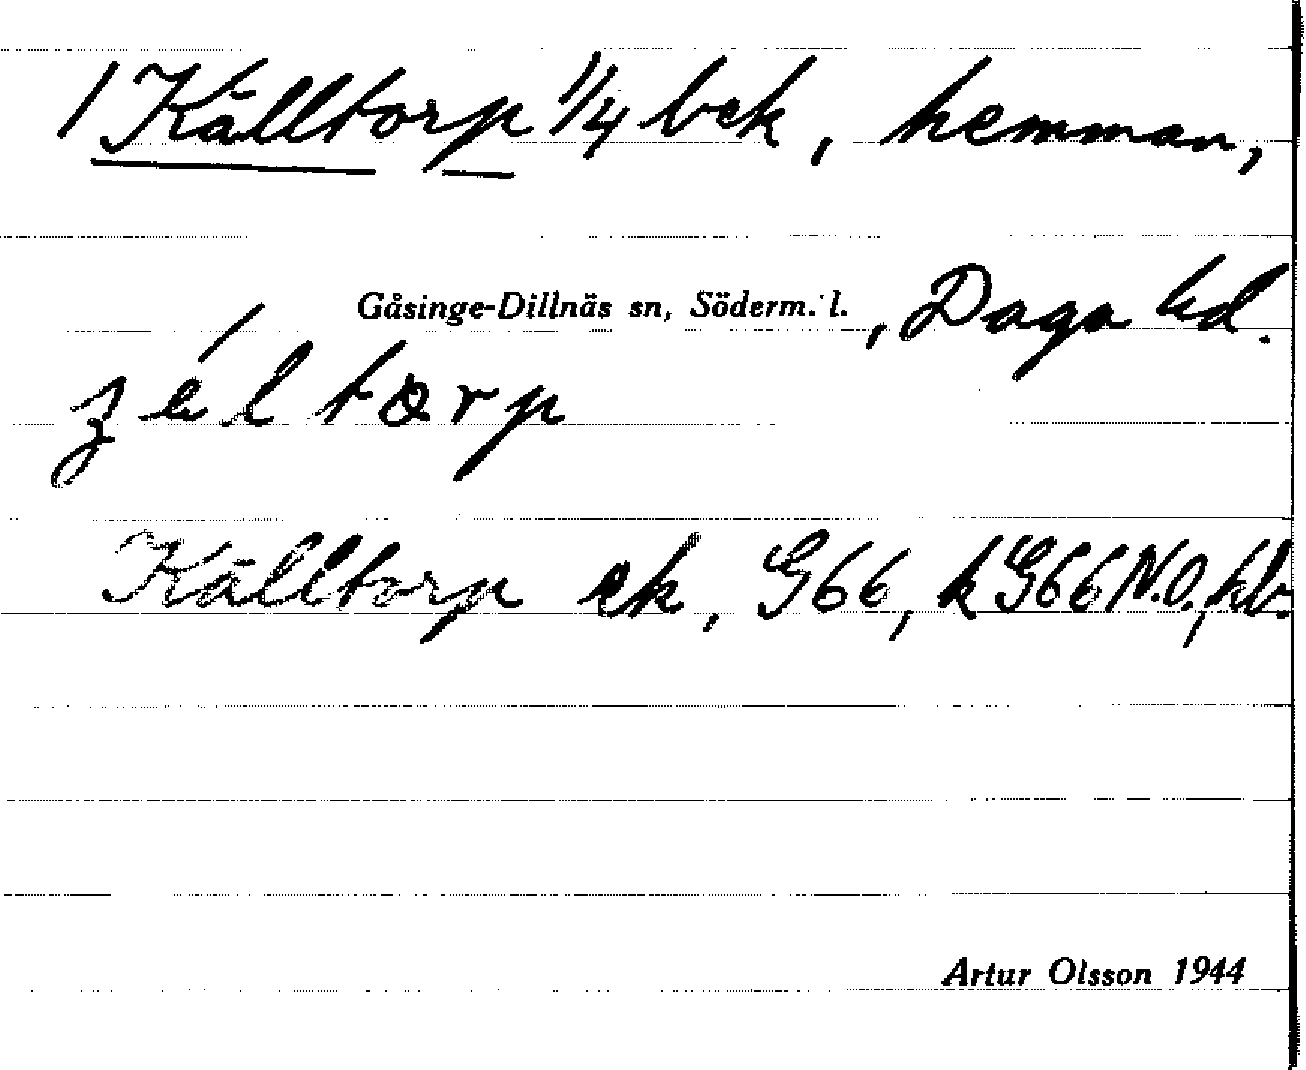 1 Källtorp 1/4 bck, hemman,
Gåsinge-Dillnäs sn, Söderm. l., Daga hd.
Källtorp ek, G66, k G66 N.O., hb.
Artur Olsson 1944